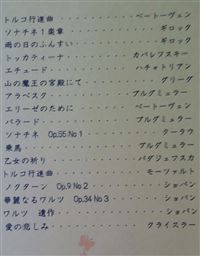 トルコ行進曲 ベートーヴェン
ソナチネ1楽章 ギロック
雨の日のふんすい ギロック
トッカティーナ カバレフスキー
エチュード ハチャトリアン
山の魔王の宮殿にて グリーグ
アラベスク ブルグミュラー
エリーゼのために ベートーヴェン
バラード ブルグミュラー
ソナチネ Op.55 No 1 クーラウ
乗馬 ブルグミュラー
乙女の祈り バダジェフスカ
トルコ行進曲 モーツァルト
ノクターン Op.9 No 2 ショパン
華麗なるワルツ Op.34 No 3 ショパン
ワルツ 遺作 ショパン
愛の悲しみ クライスラー